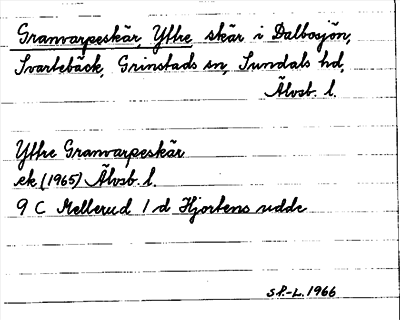 Granvarpeskär, Yttre, skär i Dalbosjön,
Svartebäck, Grinstads sn, Sundals hd,
Älvsb. l.
Yttre Granvarpeskär
ek (1965) Älvsb. l.
9 C Mellerud 1 d Hjortens udde
SP.-L. 1966